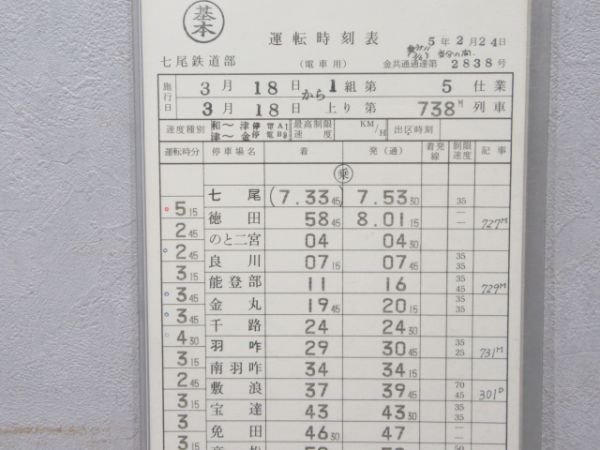 基本
運転時刻表 5年2月24日
七尾鉄道部 (電車用) 金共通通達第2838号
施行日 3月18日から1組第 5 仕業
3月18日 上り第 738M 列車
速度種別 和〜津 停電A1 津〜金 停電B9 最高制限速度 KM/H 出区時刻
運転時分 停車場名 着 発(通) 着発線 制限速度 記事
乗
七尾 (7.33 45 7.53 30 35
5 15 徳田 58 45 8.01 15 727M
2 45 のと二宮 04 04 30
2 45 良川 07 15 07 45 35 35
3 15 能登部 11 16 35 45 729M
3 45 金丸 19 45 20 15 35 35
3 45 千路 24 24 30
4 30 羽咋 29 30 45 35 25 731M
3 15 南羽咋 34 34 15
2 45 敷浪 37 39 45 70 45 301D
3 15 宝達 43 43 30 35 35
3 免田 46 30 47
3 15